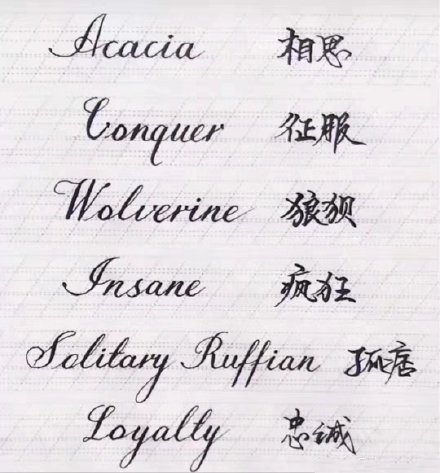 Acacia 相思
Conquer 征服
Wolverine 狼狈
Insane 疯狂
Solitary Ruffian 孤痞
Loyally 忠诚